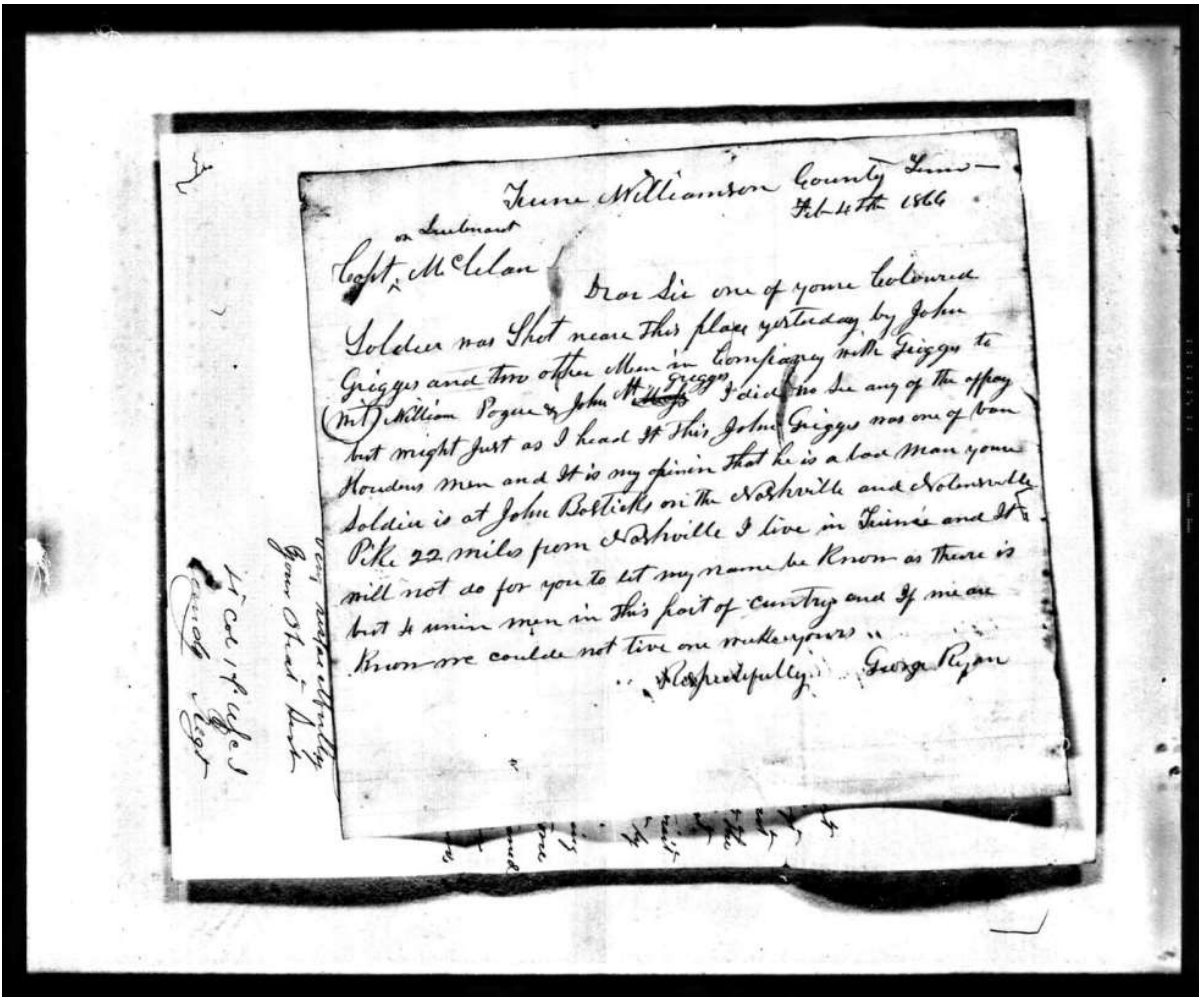 Triune Williamson County Tenn
Feb 4th 1866
or Lieutenant
Capt McClelan
Dear Sir one of youre Coloured
Soldier was Shot neare This place yesterday by John
Griggs and two other Men in Company with Griggs to
(wit) William Pogue & John M Griggs I did no See any of the affray
but might Just as I head It This John Griggs was one of van
Houdens men and It is my opinin That he is a bad Man youre
Soldier is at John Bosticks on the Nashville and Nolensville
Pike 22 miles from Nashville I live in Triune and It
will not do for you to let my name be Know as theare is
but 4 unin men in This part of cuntry and If we are
Know we coulde not live one weeke yours
Respectfully George Ryan
very respectfully
Your Obedt Servt
Lt Col 17 USCI
Comdg Regt